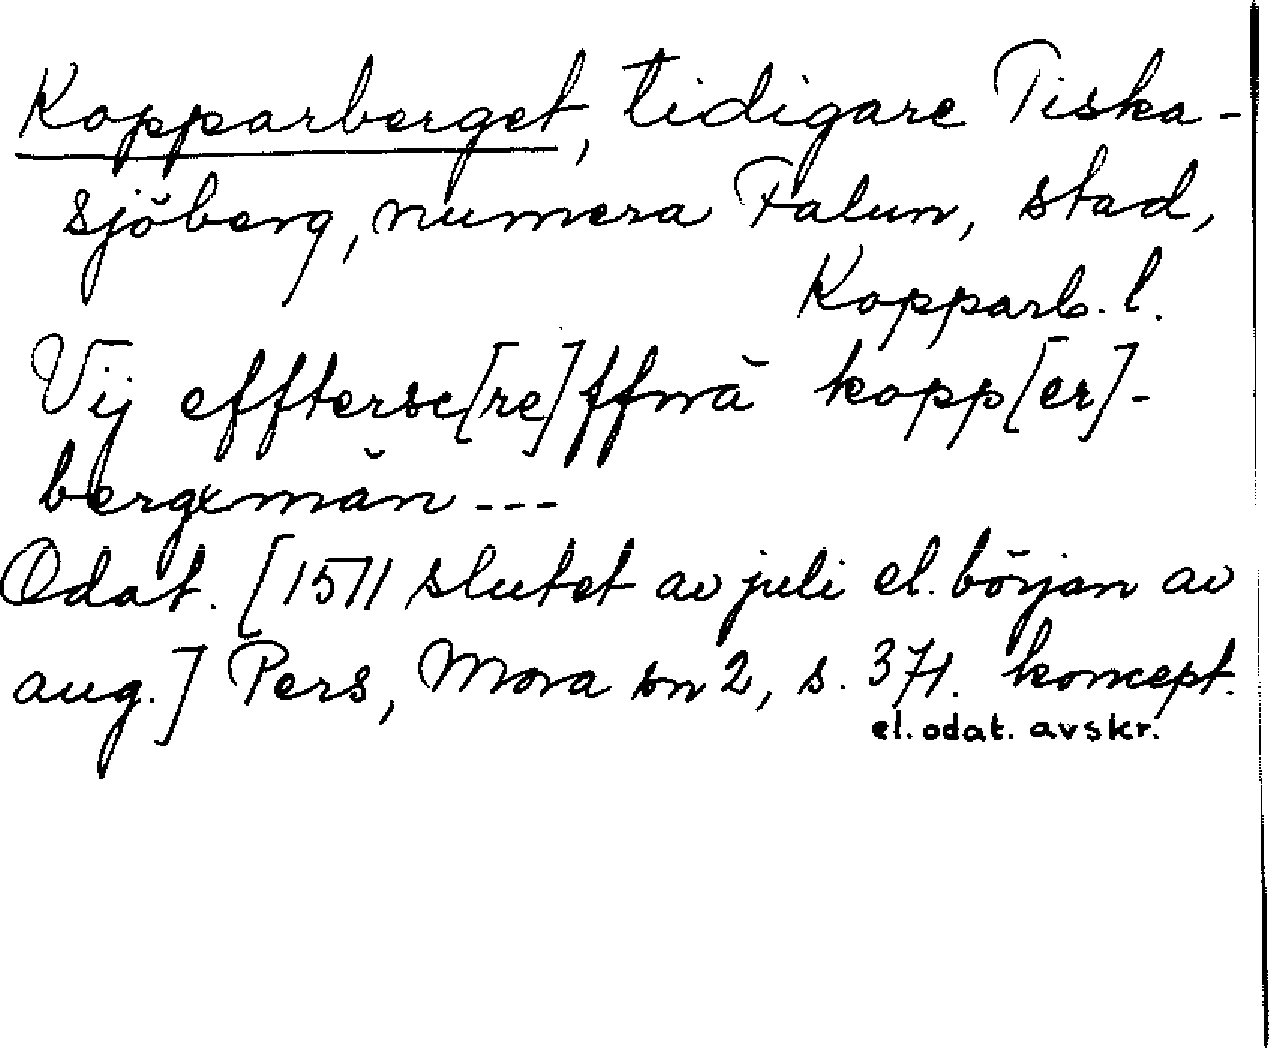 Kopparberget, tidigare Tiska-
sjöberg, numera Falun, stad,
Kopparb. l.
Vij efftersc[re]ffnä kopp[er]-
bergxmän ---
Odat. [1511 slutet av juli el. början av
aug.] Pers, Mora sn 2, s. 371. koncept.
el. odat. avskr.